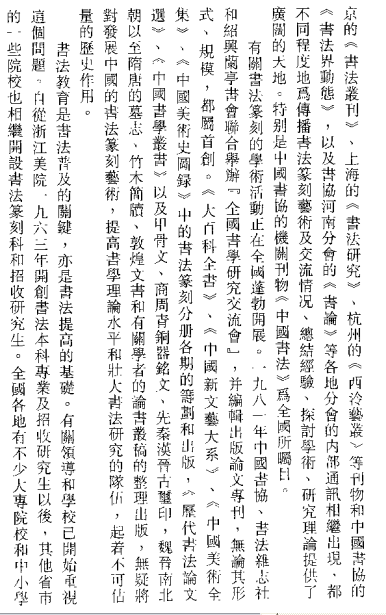 京的《書法叢刊》、上海的《書法研究》、杭州的《西泠藝叢》等刊物和中國書協的
《書法界動態》，以及書協河南分會的《書論》等各地分會的内部通訊相繼出現，都
不同程度地爲傳播書法篆刻藝術及交流情况、總結經驗、探討學術、研究理論提供了
廣闊的天地。特别是中國書協的機關刊物《中國書法》爲全國所矚目。
有關書法篆刻的學術活動正在全國蓬勃開展。一九八一年中國書協、書法雜志社
和紹興蘭亭書會聯合舉辦『全國書學研究交流會』，并編輯出版論文專刊，無論其形
式、規模，都屬首創。《大百科全書》、《中國新文藝大系》、《中國美術全
集》、《中國美術史圖録》中的書法篆刻分册各期的籌劃和出版，《歷代書法論文
選》、《中國書學叢書》以及甲骨文、商周青銅器銘文、先秦漢晉古璽印，魏晉南北
朝以至隋唐的墓志、竹木簡牘、敦煌文書和有關學者的論書叢稿的整理出版，無疑將
對發展中國的書法篆刻藝術，提高書學理論水平和壯大書法研究的隊伍，起着不可估
量的歷史作用。
書法教育是書法普及的關鍵，亦是書法提高的基礎。有關領導和學校已開始重視
這個問題。自從浙江美院一九六三年開創書法本科專業及招收研究生以後，其他省市
的一些院校也相繼開設書法篆刻科和招收研究生。全國各地有不少大專院校和中小學